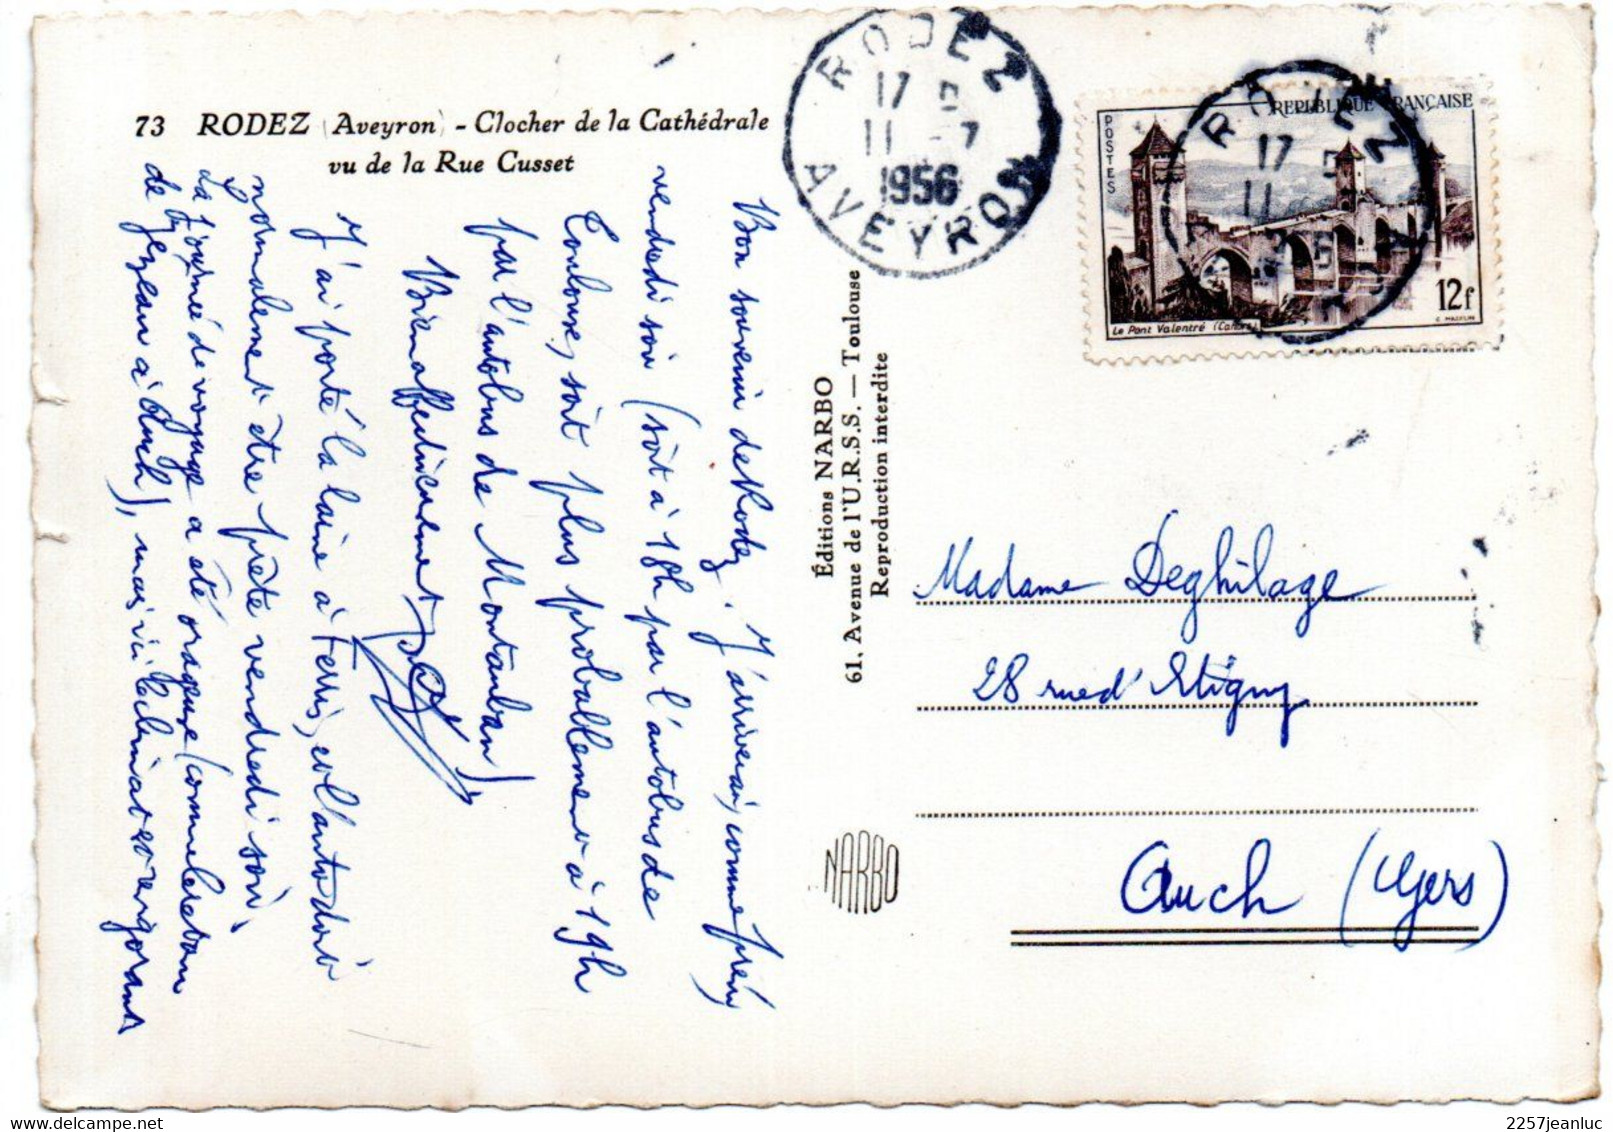 73 RODEZ (Aveyron) - Clocher de la Cathédrale
vu de la Rue Cusset
Bon souvenir de Rodez. J'arriverai, comme prévu
vendredi soir (soit à 18h par l'autobus de
Toulouse, soit plus probablement à 19h
par l'autobus de Montauban).
Bien affectueusement
J'ai porté la laine à Ferris, et l'auto doit
normalement être prête vendredi soir.
La journée de voyage a été orageuse (comme le
de à Auch), mais ici le climat est
Éditions NARBO
61, Avenue de l'U.R.S.S. — Toulouse
Reproduction interdite
NARBO
RODEZ
17 H
11 - 7
1956
AVEYRON
REPUBLIQUE FRANÇAISE
POSTES
12f
Le Pont Valentré (Cahors)
RODEZ
17 H
11
Madame Deghilage
28 rue d'Étigny
Auch (Gers)
2257jeanluc